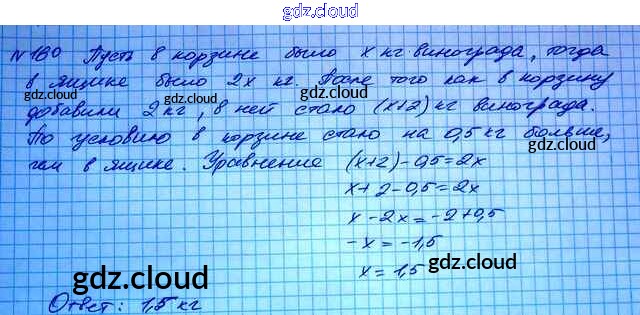 gdz.cloud
№160 Пусть в корзине было x кг винограда, тогда
в ящике было 2x кг. После того как в корзину
gdz.cloud gdz.cloud
добавили 2 кг, в ней стало (x+2) кг винограда.
По условию в корзине стало на 0,5 кг больше,
gdz.cloud
чем в ящике. Уравнение (x+2)-0,5=2x
x+2-0,5=2x
x-2x=-2+0,5
-x=-1,5
x=1,5
gdz.cloud
gdz.cloud
Ответ: 1,5 кг
gdz.cloud